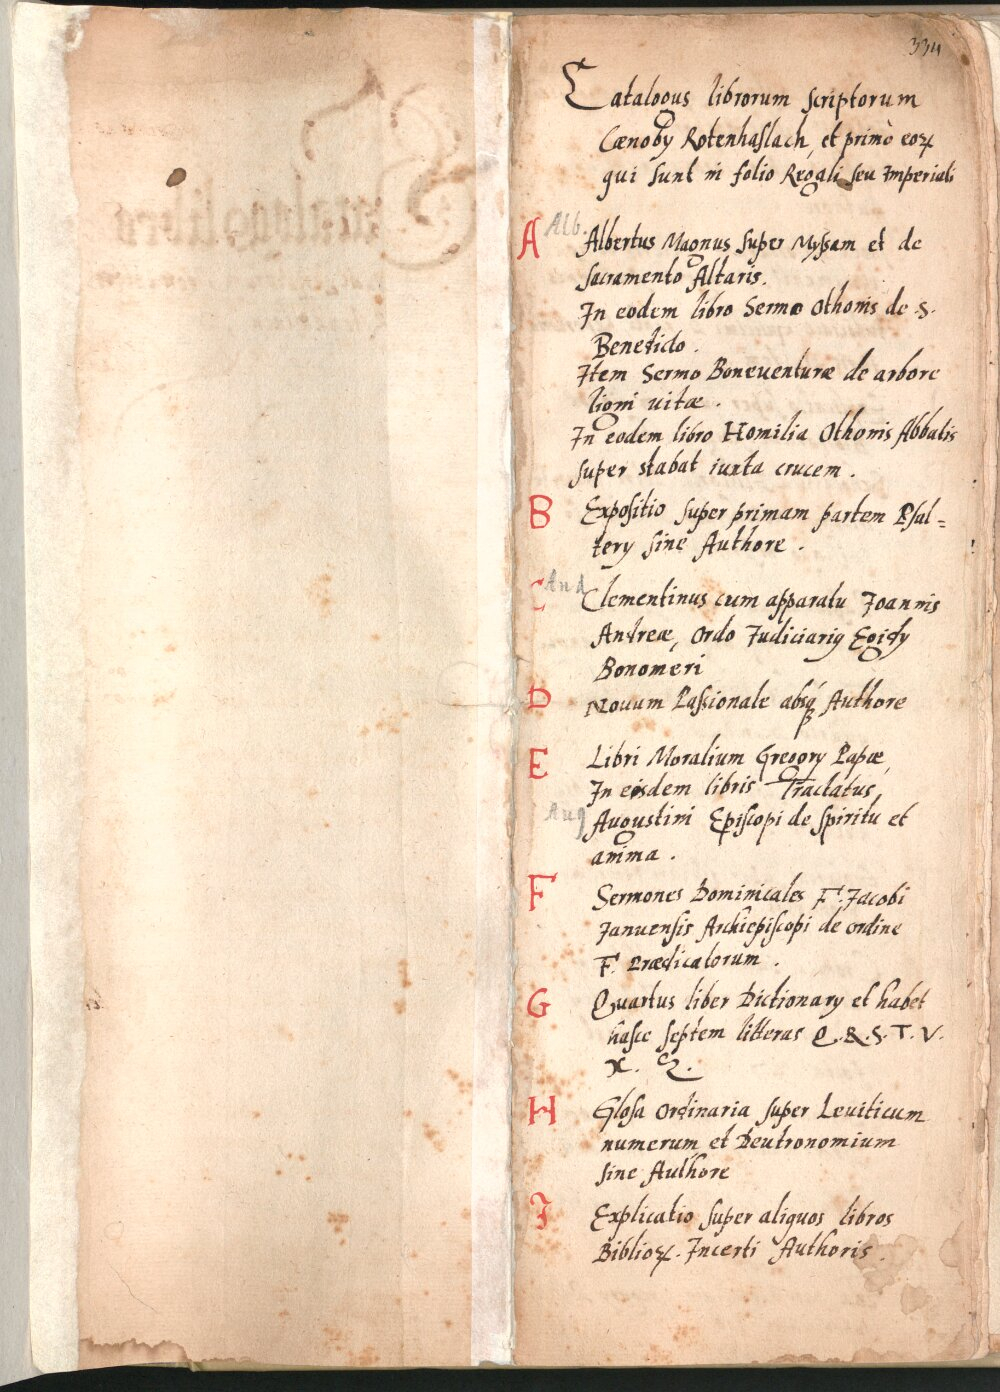 334
Catalogus librorum scriptorum
Cænobÿ Rotenhaslach, et primò eoꝝ
qui sunt in folio Regali seu Imperiali
A Alb. Albertus Magnus super Myssam et de
sacramento Altaris.
In eodem libro Sermo Othonis de .S.
Benedicto.
Item Sermo Boneuenturæ de arbore
ligni uitæ.
In eodem libro Homilia Othonis Abbatis
super stabat iuxta crucem.
B Expositio super primam partem Psal=
terÿ sine Authore.
C And Clementinus cum apparatu Joannis
Andreæ, Ordo Judiciariꝰ Egidÿ
Bonomeri
D Nouum Passionale absq́ Authore
E Libri Moralium Gregorÿ Papæ,
In eisdem libris Tractatus,
Aug Augustini Episcopi de spiritu et
anima.
F Sermones Dominicales F. Jacobi
Januensis Archiepiscopi de ordine
F. Prædicatorum.
G Quartus liber Dictionarÿ et habet
hasce septem litteras Q.R.S.T.V.
X. Z.
H Glosa Ordinaria super Leuiticum
numerum et Deutronomium
sine Authore
I Explicatio super aliquos libros
Biblioꝝ. Incerti Authoris.